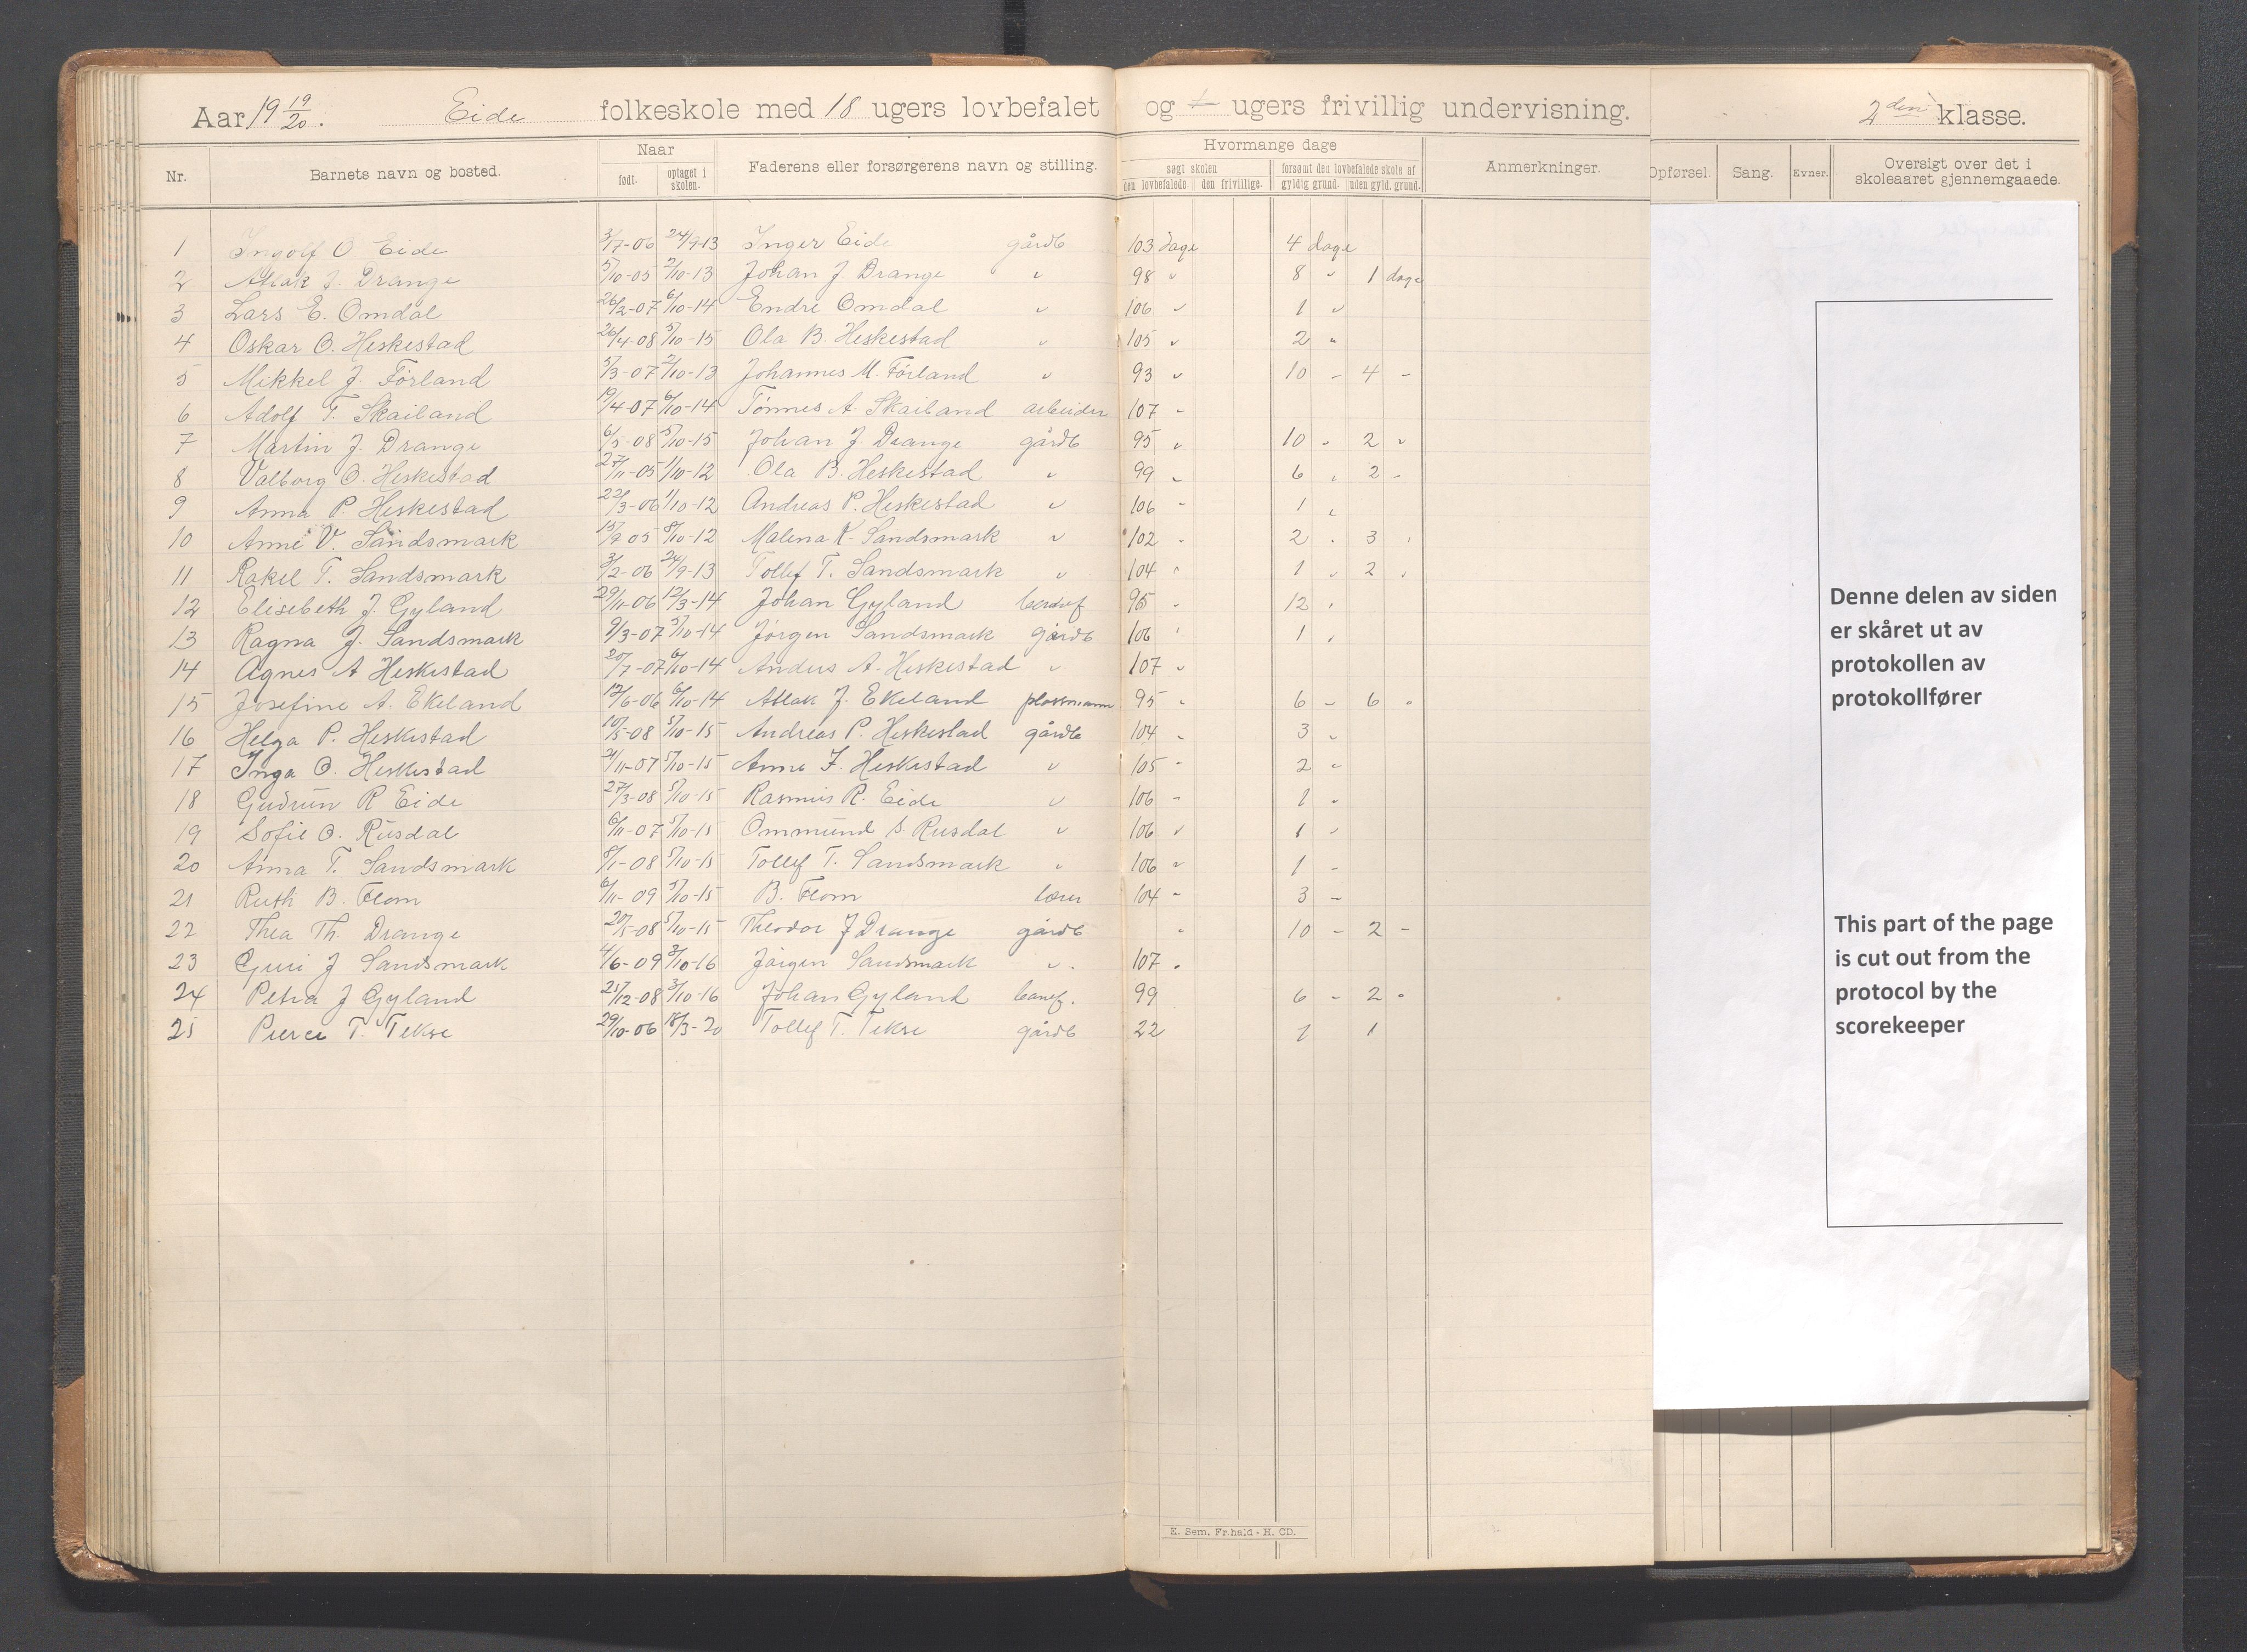 Aar 19 19/20. Eide folkeskole med 18 ugers lovbefalet og ugers frivillig undervisning. 2den klasse.
Nr. Barnets navn og bosted. Naar født. optaget i skolen. Faderens eller forsørgerens navn og stilling. Hvormange dage søgt skolen den lovbefalede. den frivillige. forsømt den lovbefalede skole af gyldig grund. uden gyld. grund. Anmerkninger. Opførsel. Sang. Evner. Oversigt over det i skoleaaret gjennemgaaede.
1 Ingolf O Eide 3/7-06 24/9-13 Inger Eide gårdb 103 dage 4 dage
2 Aslak J. Drange 5/10-05 2/10-13 Johan J Drange " 98 " 8 " 1 dage
3 Lars E. Omdal 26/2-07 6/10-14 Endre Omdal " 106 " 1 "
4 Oskar O. Heskestad 26/4-08 5/10-15 Ola B. Heskestad " 105 " 2 "
5 Mikkel J. Förland 5/3-07 2/10-13 Johannes M. Förland " 93 " 10 - 4 -
6 Adolf T. Skailand 19/4-07 6/10-14 Tönnes A. Skailand arbeider 107 "
7 Martin J. Drange 6/5-08 5/10-15 Johan J. Drange gårdb 95 " 10 - 2 "
8 Valborg O. Heskestad 27/11-05 1/10-12 Ola B. Heskestad " 99 " 6 " 2 -
9 Anna P. Heskestad 22/3-06 1/10-12 Andreas P. Heskestad " 106 - 1 "
10 Anne V. Sandsmark 15/9 05 8/10-12 Malena K. Sandsmark " 102 - 2 " 3 "
11 Rakel T. Sandsmark 3/2-06 24/9-13 Tollef T. Sandsmark " 104 " 1 " 2 "
12 Elisebeth J. Gyland 29/11-06 12/3-14 Johan Gyland 95 - 12 "
13 Ragna J. Sandsmark 9/3-07 5/10-14 Jörgen Sandsmark gårdb 106 " 1 "
14 Agnes A Heskestad 20/7-07 6/10-14 Anders A. Heskestad " 107 "
15 Josefine A. Ekeland 12/6-06 6/10-14 Aslak J. Ekeland plassmann 95 " 6 - 6 "
16 Helga P. Heskestad 10/5-08 5/10-15 Andreas P. Heskestad gårdb 104 " 3 "
17 Inga O. Heskestad 21/11-07 5/10-15 Anne F. Heskestad " 105 " 2 "
18 Gudrun R Eide 27/3-08 5/10-15 Rasmus R. Eide " 106 - 1 "
19 Sofie O. Rusdal 6/11-07 5/10-15 Ommund S. Rusdal " 106 " 1 "
20 Anna T. Sandsmark 8/1-08 5/10-15 Tollef T. Sandsmark " 106 " 1 -
21 Ruth B. Flom 6/11-09 5/10-15 B. Flom lærer 104 " 3 -
22 Thea Th. Drange 20/5-08 5/10-15 Theodor J Drange gårdb " 10 - 2 -
23 Guri J Sandsmark 4/6-09 3/10-16 Jörgen Sandsmark " 107 "
24 Petra J Gyland 25/12-08 3/10-16 Johan Gyland 99 6 - 2 "
25 T. Tekse 29/10-06 18/3-20 Tollef T. Tekse gårdb 22 1 1
Denne delen av siden
er skåret ut av
protokollen av
protokollfører
This part of the page
is cut out from the
protocol by the
scorekeeper
E. Sem. Fr.hald - H. CD.